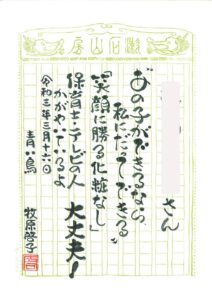 漱石山房
さん
あの子ができるなら、
私にだってできる
「笑顔に勝る化粧なし」
保育士・テレビの人
大丈夫!
かがやいてるよ
令和三年三月十六日
青い鳥
牧原啓子